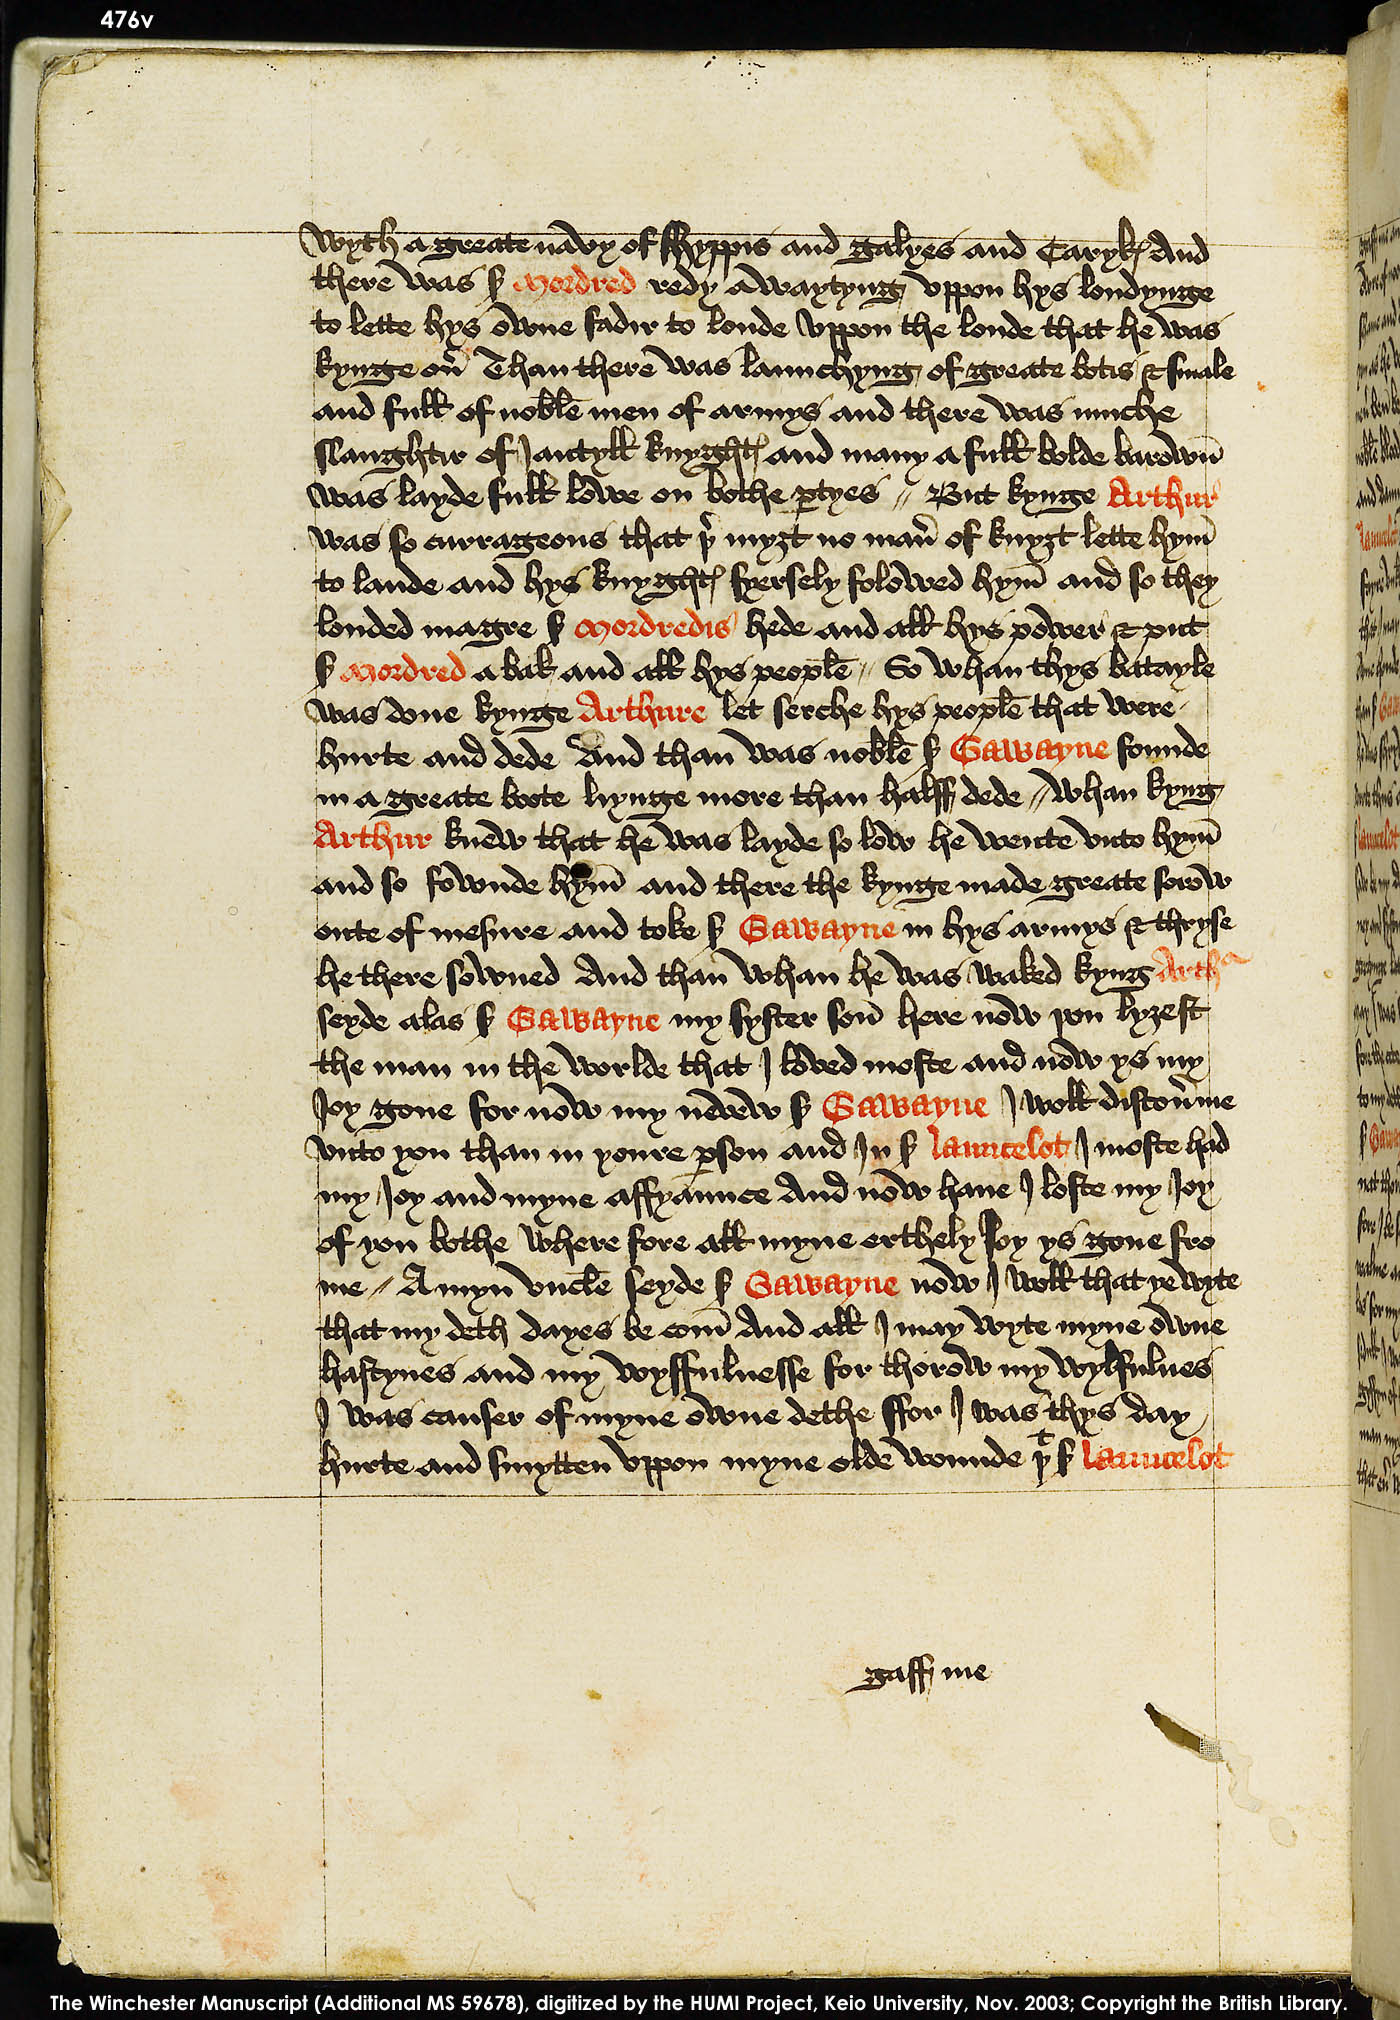 476v
wyth a greate navy of shyppis and galyes and Carykꝭ And
there was ẜ Mordred redy a waytyng vppon hys londynge
to lette hys owne fadir to londe vppon the londe that he was
kynge ov̾ Than there was launchyng of greate botis & smale
and full of noble men of armys and there was muche
slaughtir of Jantyll knyghtꝭ and many a full bolde barown̄
was layde full lowe on bothe ꝑtyes // But kynge Arthur
was so currageous that þ̾ myȝt no man̄ of knyȝt lette hym̄
to lande and hys knyghtꝭ fyersely folowed hym̄ and so they
londed magre ẜ Mordredis hede and all hys power & put
ẜ Mordred a bak and all hys people // So whan thys batayle
was done kynge Arthure let serche hys people that were
hurte and dede And than was noble ẜ Gawayne founde
in a greate boote liynge more than halff dede // whan kyng
Arthur knew that he was layde so low he wente vnto hym̄
and so fownde hym̄ and there the kynge made greate sorow
oute of mesure and toke ẜ Gawayne in hys armys & thryse
he there sowned And than whan he was waked kyng Arthᵃ
seyde alas ẜ Gawayne my syster son̄ here now you lyȝest
the man in the worlde that I loved moste and now ys my
Joy gone for now my nevew ẜ Gawayne I woll discov̾ me
vnto you than in youre ꝑson and In ẜ launcelot I moste had
my Joy and myne affyaunce And now haue I loste my Joy
of you bothe where fore all myne erthely Joy ys gone fro
me // A myn vncle seyde ẜ Gawayne now I woll that ye wyte
that my deth dayes be com̄ And all I may wyte myne owne
hastynes and my wyffulnesse for thorow my wylfulnes
I was causer of myne owne dethe ffor I was thys day
hurte and smytten vppon myne olde wounde þᵗ ẜ launcelot
gaff me
The Winchester Manuscript (Additional MS 59678), digitized by the HUMI Project, Keio University, Nov. 2003; Copyright the British Library.